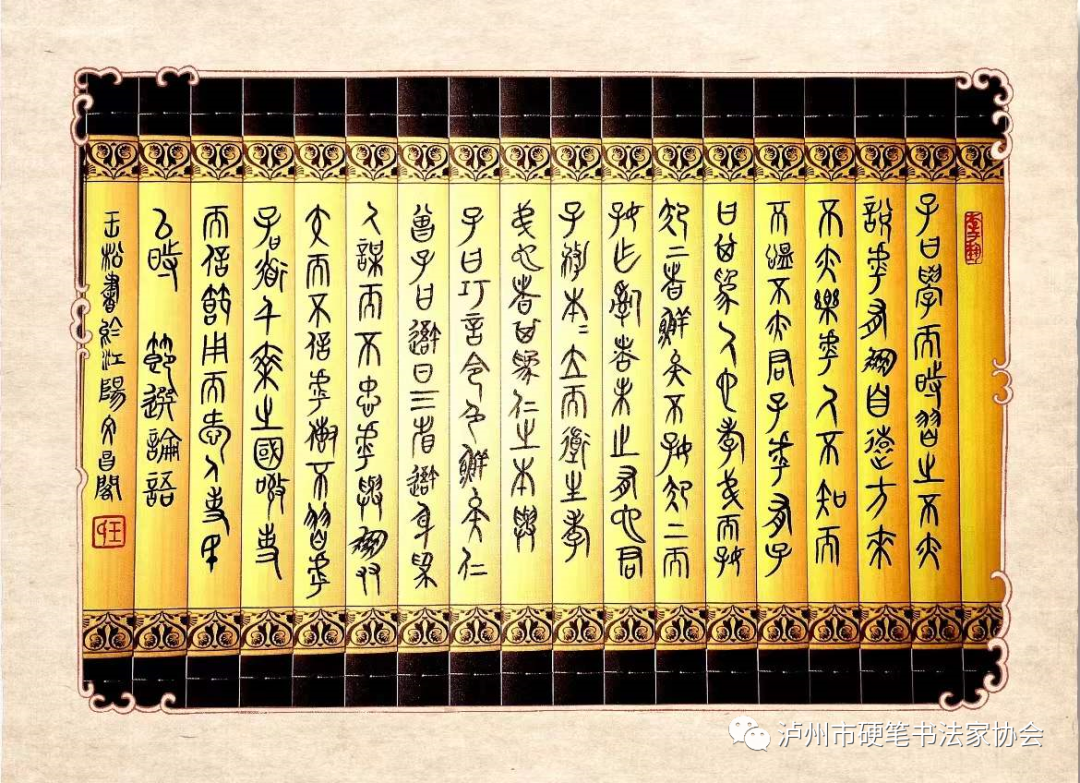 子曰學而時習之不亦
說乎有朋自遠方來
不亦樂乎人不知而
不慍不亦君子乎有子
曰其為人也孝弟而好
犯上者鮮矣不好犯上而
好作亂者未之有也君
子務本＝立而道生孝
弟也者其為仁之本與
子曰巧言令色鮮矣仁
曾子曰吾日三省吾身為
人謀而不忠乎與朋友
交而不信乎傳不習乎
子曰道千乘之國敬事
而信節用而愛人使民
以時 節選論語
王松書於江陽文昌閣
泸州市硬笔书法家协会